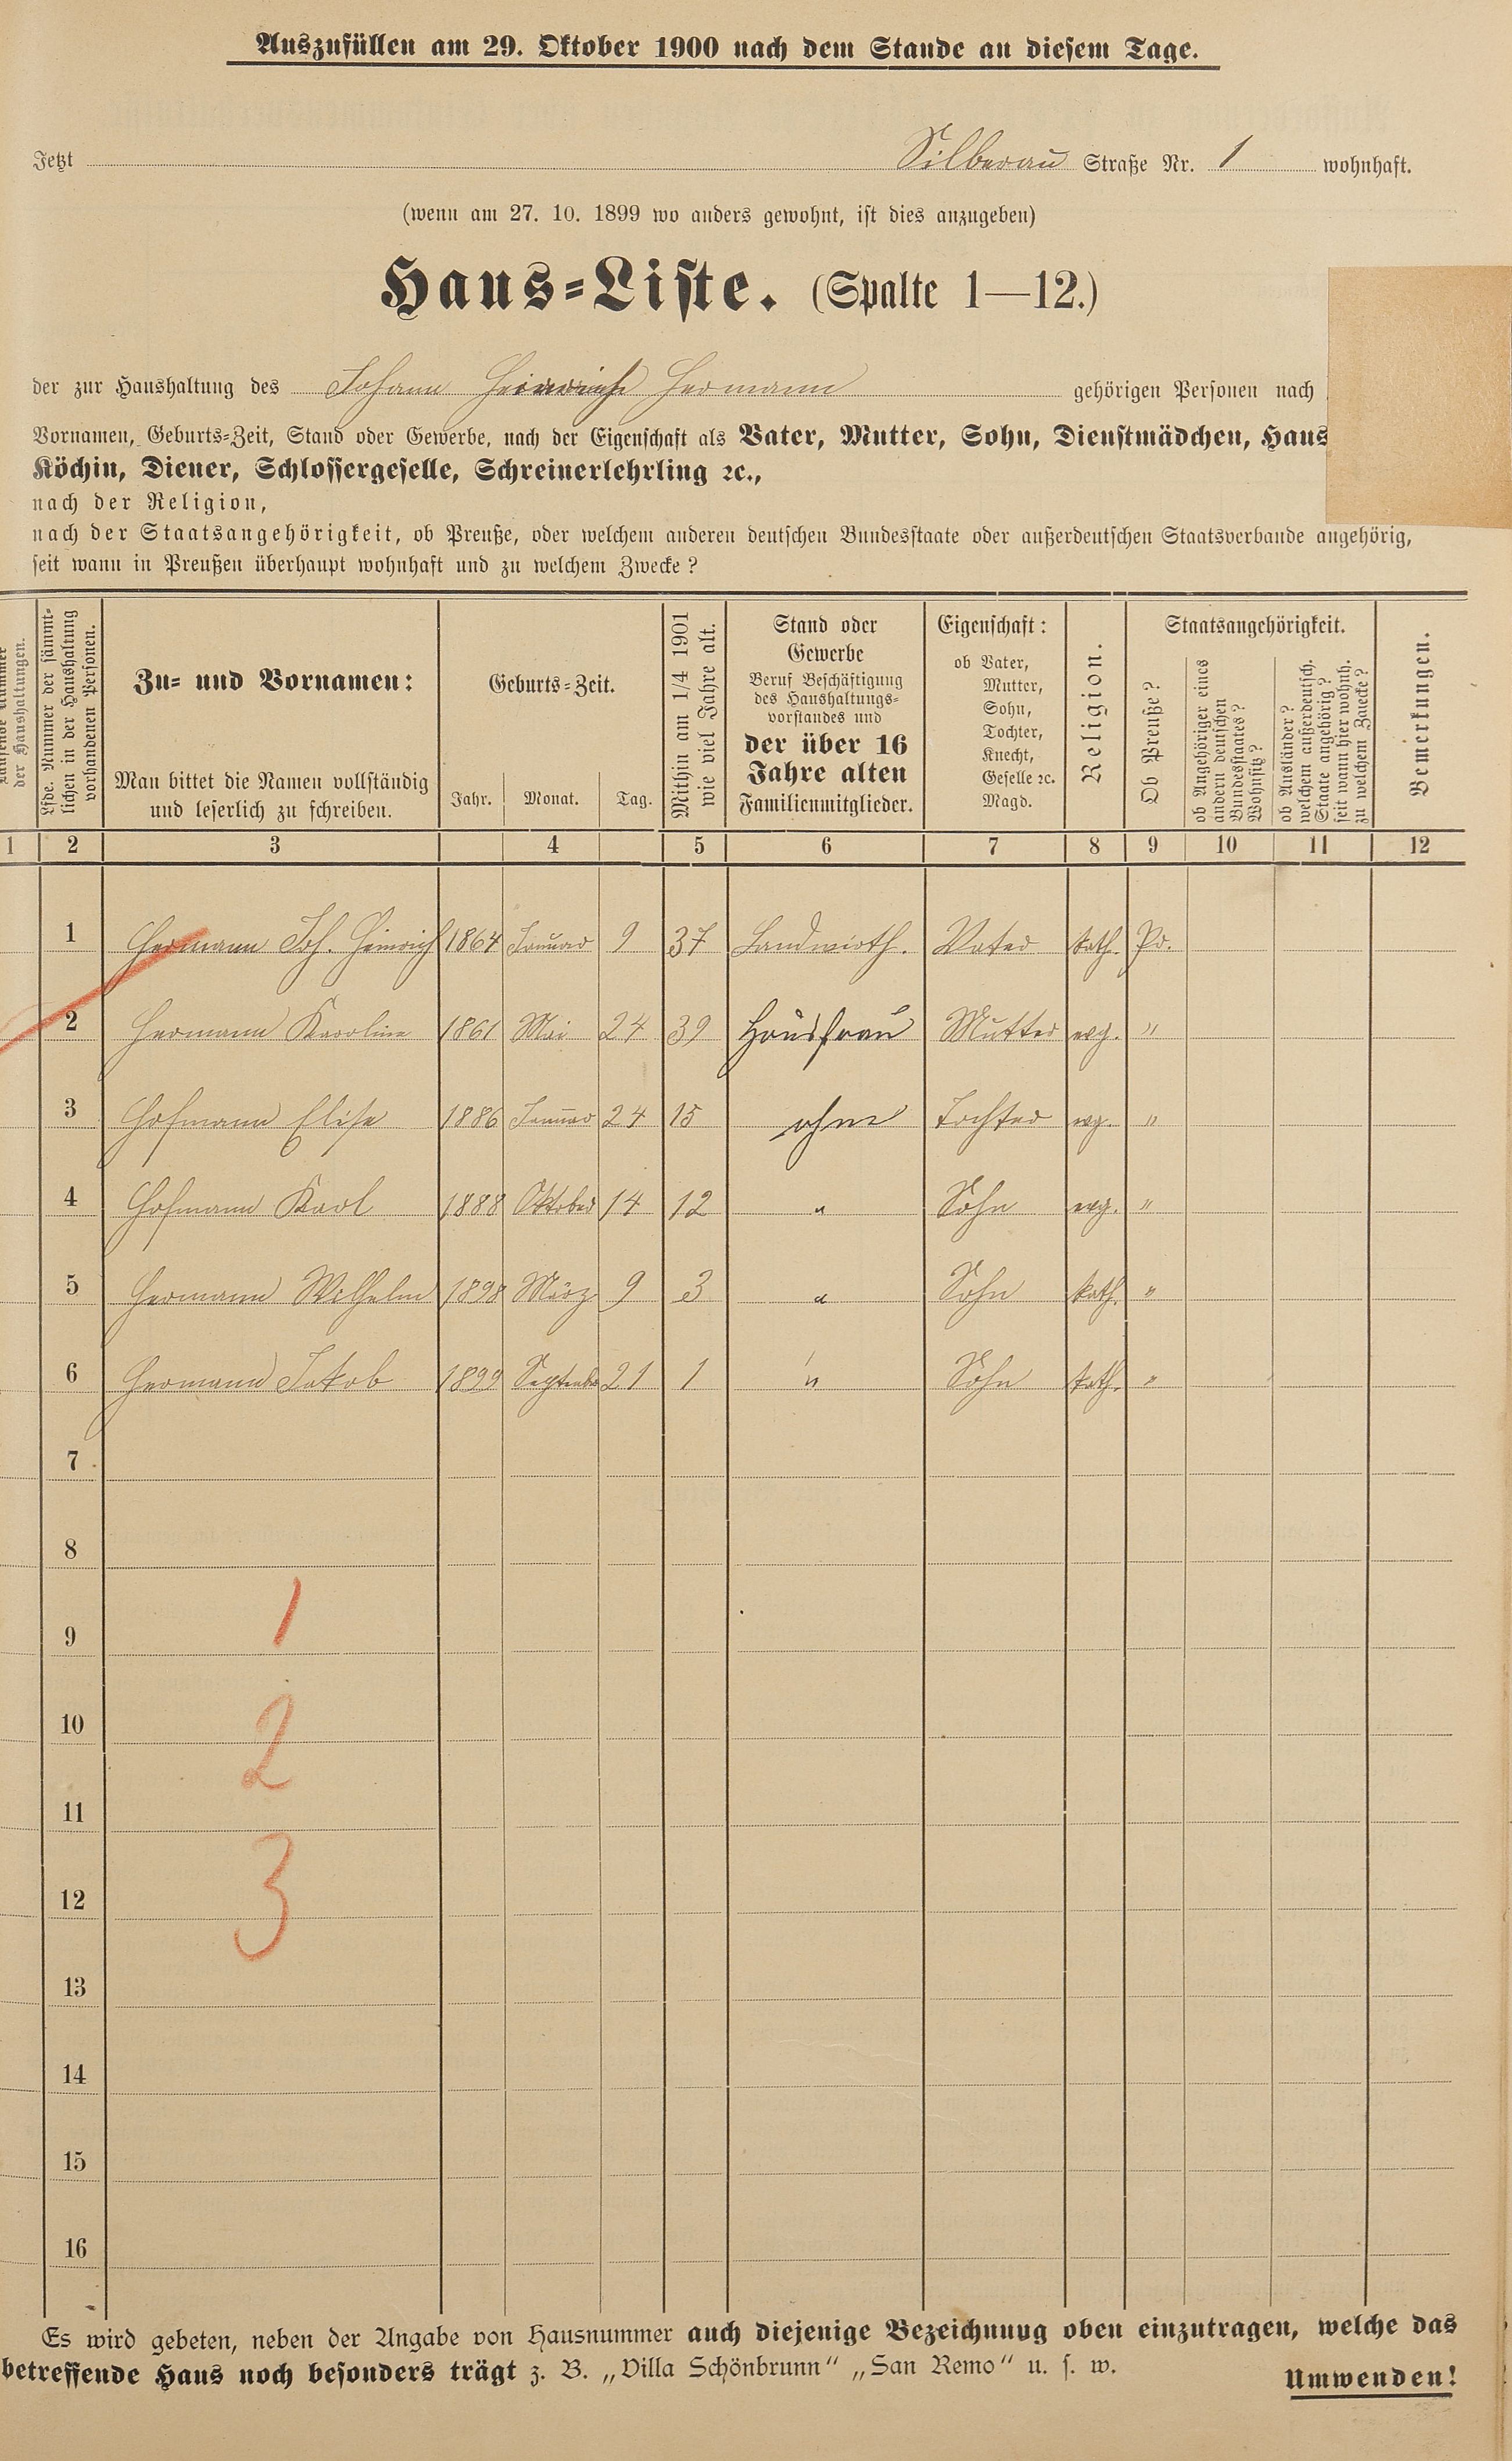 Auszufüllen am 29. Oktober 1900 nach dem Stande an diesem Tage.
Jetzt Silberau Straße Nr. 1 wohnhaft.
(wenn am 27. 10. 1899 wo anders gewohnt, ist dies anzugeben)
Haus-Liste. (Spalte 1—12.)
der zur Haushaltung des Johann Heinrich Hermann gehörigen Personen nach
Vornamen, Geburts-Zeit, Stand oder Gewerbe, nach der Eigenschaft als Vater, Mutter, Sohn, Dienstmädchen, Haus
Köchin, Diener, Schlossergeselle, Schreinerlehrling ꝛc.,
nach der Religion,
nach der Staatsangehörigkeit, ob Preuße, oder welchem anderen deutschen Bundesstaate oder außerdeutschen Staatsverbande angehörig,
seit wann in Preußen überhaupt wohnhaft und zu welchem Zwecke?
der Haushaltungen.
Lfde. Nummer der sämmt-
lichen in der Haushaltung
vorhandenen Personen.
Zu- und Vornamen:
Man bittet die Namen vollständig
und leserlich zu schreiben.
Geburts-Zeit.
Jahr. Monat. Tag.
Mithin am 1/4 1901
wie viel Jahre alt.
Stand oder
Gewerbe
Beruf Beschäftigung
des Haushaltungs-
vorstandes und
der über 16
Jahre alten
Familienmitglieder.
Eigenschaft:
ob Vater,
Mutter,
Sohn,
Tochter,
Knecht,
Geselle ꝛc.
Magd.
Religion.
Staatsangehörigkeit.
Ob Preuße?
ob Angehöriger eines
andern deutschen
Bundesstaates?
Wohnsitz?
ob Ausländer?
welchem außerdeutsch.
Staate angehörig?
seit wann hier wohnh.
zu welchem Zwecke?
Bemerkungen.
1 2 3 4 5 6 7 8 9 10 11 12
1 Hermann Joh. Heinrich 1864 Januar 9 37 Landwirth. Vater kath. Pr.
2 Hermann Karoline 1861 Mai 24 39 Hausfrau Mutter evg. "
3 Hofmann Elise 1886 Januar 24 15 ohne Tochter evg. "
4 Hofmann Karl 1888 Oktober 14 12 " Sohn evg. "
5 Hermann Wilhelm 1898 März 9 3 " Sohn kath. "
6 Hermann Jakob 1899 September 21 1 " Sohn kath. "
7
8
9 1
10 2
11
12 3
13
14
15
16
Es wird gebeten, neben der Angabe von Hausnummer auch diejenige Bezeichnung oben einzutragen, welche das
betreffende Haus noch besonders trägt z. B. „Villa Schönbrunn“ „San Remo“ u. s. w.
Umwenden!